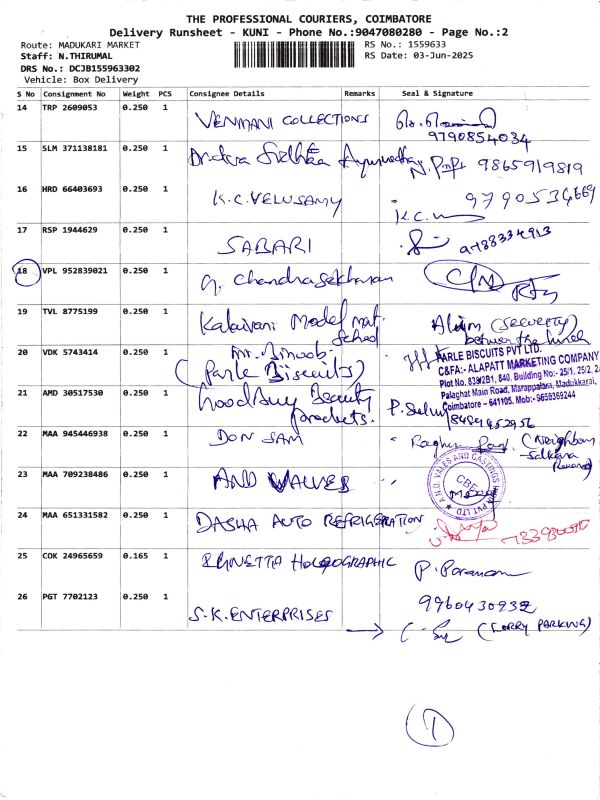 THE PROFESSIONAL COURIERS, COIMBATORE
Delivery Runsheet - KUNI - Phone No.:9047080280 - Page No.:2
Route: MADUKARI MARKET
RS No.: 1559633
Staff: N.THIRUMAL
RS Date: 03-Jun-2025
DRS No.: DCJB155963302
Vehicle: Box Delivery
S No Consignment No Weight PCS Consignee Details Remarks Seal & Signature
14 TRP 2609053 0.250 1 VENMANI COLLECTIONS
9790854034
15 SLM 371138181 0.250 1 9865919819
16 HRD 66403693 0.250 1 K.C.VELUSAMY 9790534669
K.C.
17 RSP 1944629 0.250 1 SABARI 9788334913
18 VPL 952839021 0.250 1 G. Chandrasekharan
19 TVL 8775199 0.250 1 Kalaivani Model mat. School (Security)
20 VDK 5743414 0.250 1 Mr. Binoob
(Parle Biscuits)
PARLE BISCUITS PVT LTD.
C&FA:- ALAPATT MARKETING COMPANY
Plot No. 839/2B1, 840, Building No:- 25/1, 25/2,
Palaghat Main Road, Marappalam, Madukkarai,
Coimbatore - 641105. Mob:- 9656369244
21 AMD 30517530 0.250 1 Goodbuy Beauty products.
22 MAA 945446938 0.250 1 DON SAM Raghu (Neighbour
23 MAA 709238486 0.250 1 AND VALVES
A.N.D. VALES AND CASTINGS PVT LTD
CBE
24 MAA 651331582 0.250 1 DASHA AUTO REFRIGERATION
25 COK 24965659 0.165 1 HOLOGRAPHIC P.
26 PGT 7702123 0.250 1 S.K.ENTERPRISES 9960430932
(LORRY PARKING)
1